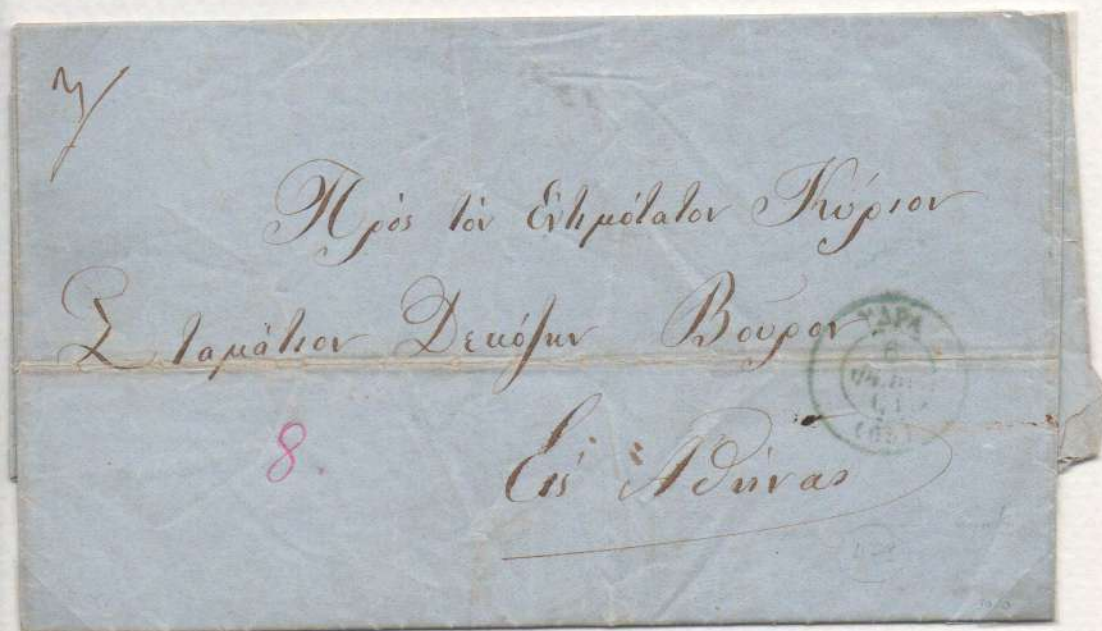 Πρὸς τὸν Ἐντιμότατον Κύριον
Σταμάτιον Δεκόζην Βοῦρον
ΥΔΡΑ
6
8.
Εἰς Ἀθήνας